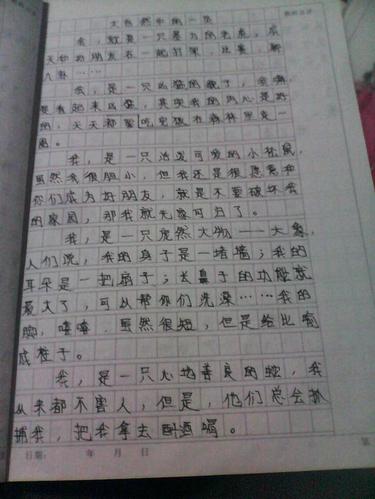 大自然中的一员
我，就是一只暴力的老虎，成
天和动朋友在一起打架，比赛，
人群……
我，是一只凶猛的狮子，会
是看起来凶猛，其实我的内心是好
的，天天都要吃完饭在森林里走一
圈。
我，是一只活泼可爱的小松鼠，
虽然我很胆小，但我还是很愿意和
你们成为好朋友，就是不要破坏我
的家园，那我就无家可归了。
我，是一只庞然大物——大象，
人们说，我的身子是一堵墙；我的
耳朵是一把扇子；长鼻子的功能就
最大了，可以帮你们洗澡……我的
脚，嘻嘻，虽然很短，但是给比喻
成柱子。
我，是一只心地善良的蛇，我
从来都不害人，但是，他们总会抓
捕我，把我拿去酎酒喝。
日期： 年 月 日
第